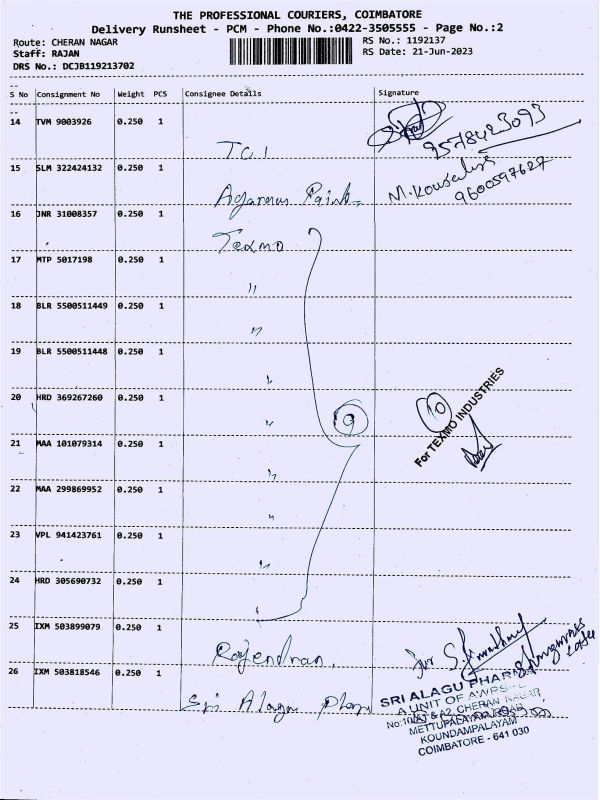 THE PROFESSIONAL COURIERS, COIMBATORE
Delivery Runsheet - PCM - Phone No.:0422-3505555 - Page No.:2
Route: CHERAN NAGAR
Staff: RAJAN
DRS No.: DCJB119213702
RS No.: 1192137
RS Date: 21-Jun-2023
S No Consignment No Weight PCS Consignee Details Signature
14 TVM 9003926 0.250 1
TCI
9578423093
15 SLM 322424132 0.250 1
M. Kousalya
9600597627
16 JNR 31008357 0.250 1
Texmo
17 MTP 5017198 0.250 1 "
18 BLR 5500511449 0.250 1 "
19 BLR 5500511448 0.250 1 "
20 HRD 369267260 0.250 1 "
9
10
For TEXMO INDUSTRIES
21 MAA 101079314 0.250 1 "
22 MAA 299869952 0.250 1 "
23 VPL 941423761 0.250 1 "
24 HRD 305690732 0.250 1 "
25 IXM 503899079 0.250 1
Rajendran,
26 IXM 503818546 0.250 1
Sri Alagu
SRI ALAGU PHARMA
A UNIT OF
CHERAN NAGAR
METTUPALAYAM ROAD
KOUNDAMPALAYAM
COIMBATORE - 641 030